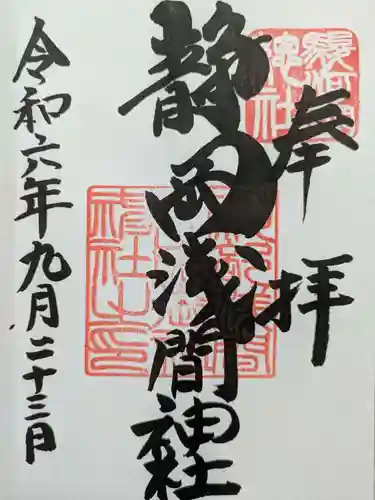 奉拝
静岡浅間神社
令和六年九月二十三日